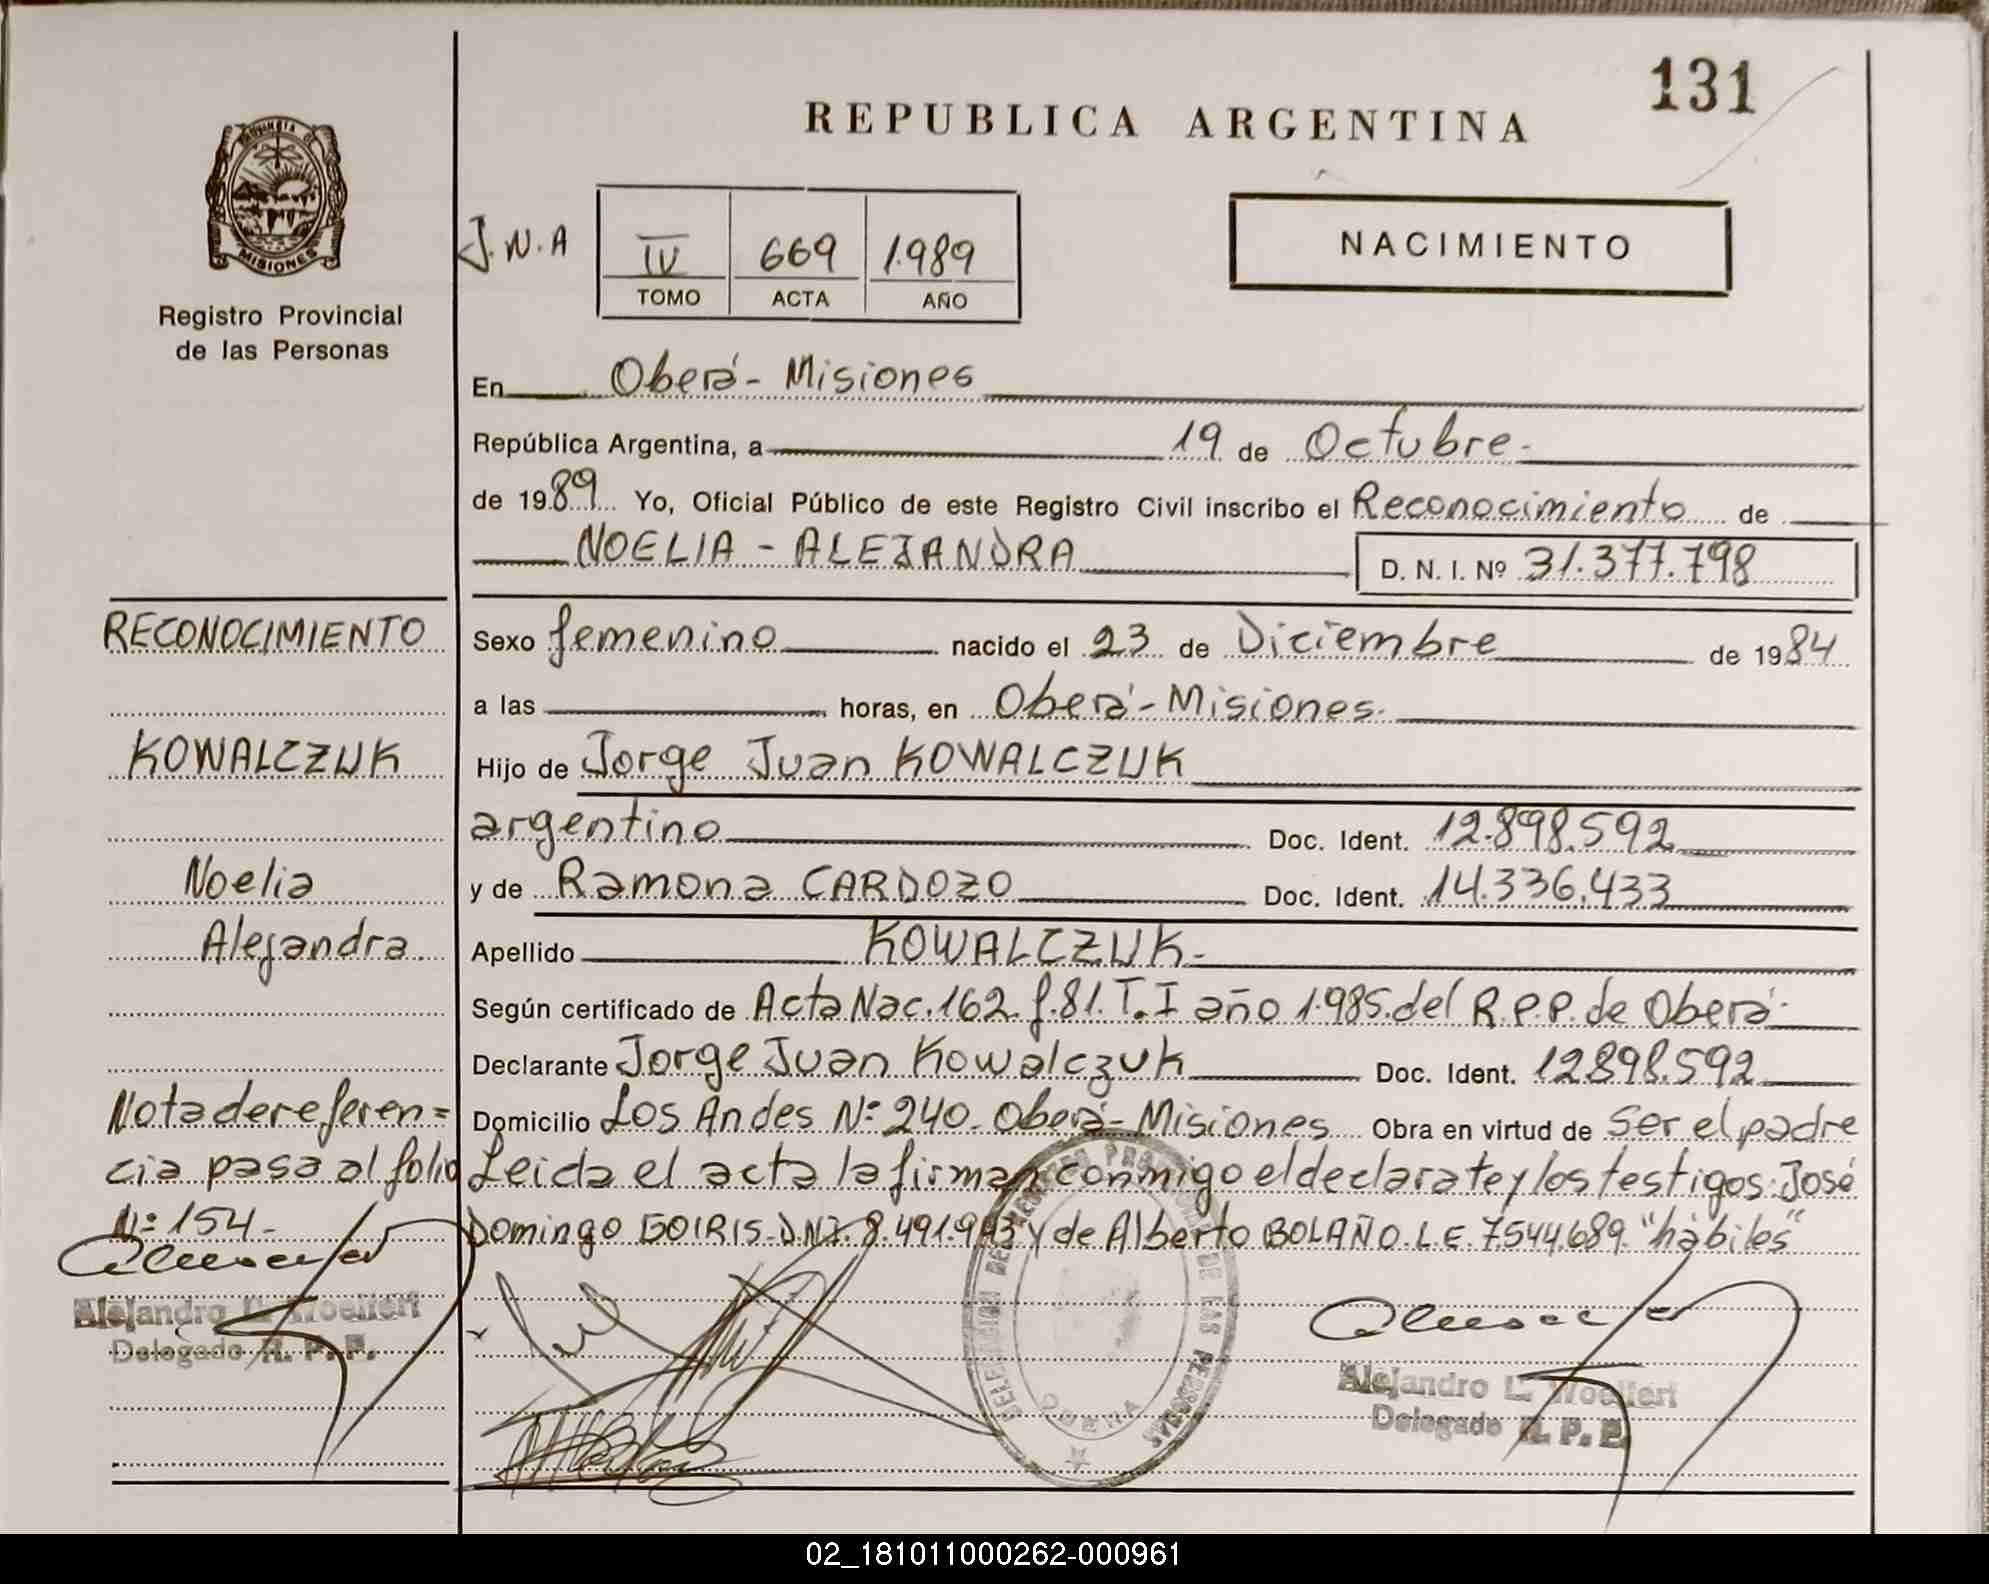 131
REPUBLICA ARGENTINA
PROVINCIA DE
MISIONES
Registro Provincial
de las Personas
J.N.A
IV 669 1.989
TOMO ACTA AÑO
NACIMIENTO
En Oberá - Misiones
República Argentina, a 19 de Octubre.
de 1989 Yo, Oficial Público de este Registro Civil inscribo el Reconocimiento de
NOELIA - ALEJANDRA D. N. I. Nº 31.377.798
RECONOCIMIENTO
KOWALCZUK
Noelia
Alejandra.
Nota de referen=
cia pasa al folio
Nº 154-
Alejandro L. Woelferi
Delegado R. P. P.
Sexo femenino nacido el 23 de Diciembre de 1984
a las horas, en Oberá - Misiones.
Hijo de Jorge Juan KOWALCZUK
argentino Doc. Ident. 12.898.592
y de Ramona CARDOZO Doc. Ident. 14.336.433
Apellido KOWALCZUK-
Según certificado de Acta Nac. 162. f. 81. T. I año 1.985. del R.P.P. de Oberá-
Declarante Jorge Juan Kowalczuk Doc. Ident. 12.898.592
Domicilio Los Andes Nº 240- Oberá- Misiones Obra en virtud de Ser el padre
Leida el acta la firman conmigo el declarate y los testigos: José
Domingo GOIRIS. DNI. 8.491.943 y de Alberto BOLAÑO. L.E. 7544.689. "hábiles"
DE LAS PERSONAS
OBERA
Alejandro L. Woelferi
Delegado R. P. P.
02_181011000262-000961